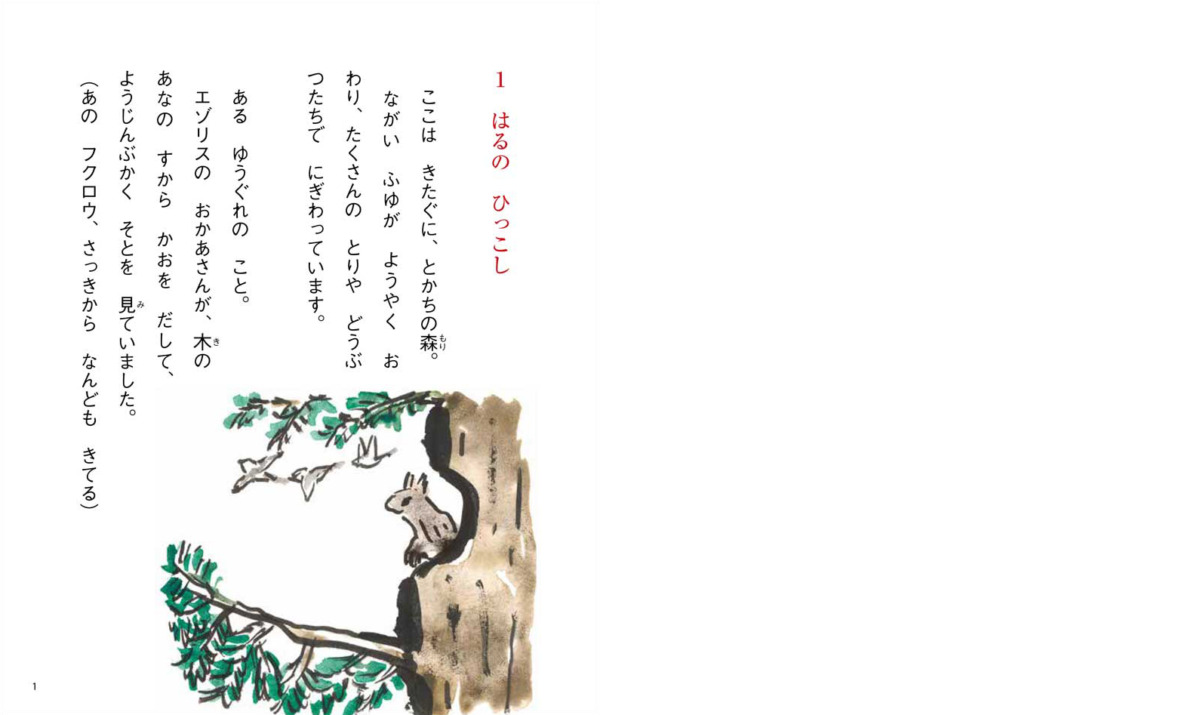 1 はるの ひっこし
ここは きたぐに、とかちの森。
ながい ふゆが ようやく お
わり、たくさんの とりや どうぶ
つたちで にぎわっています。
ある ゆうぐれの こと。
エゾリスの おかあさんが、木の
あなの すから かおを だして、
ようじんぶかく そとを 見ていました。
(あの フクロウ、さっきから なんども きてる)
もり
き
み
1